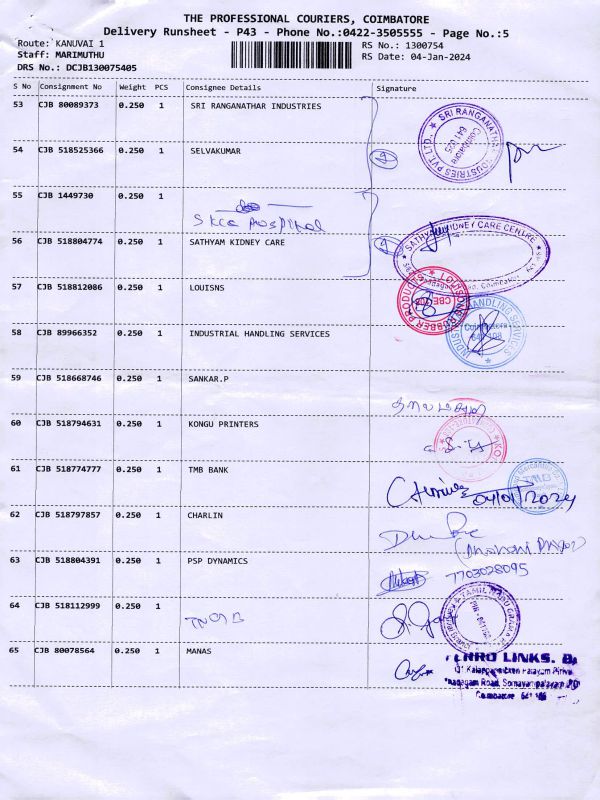 THE PROFESSIONAL COURIERS, COIMBATORE
Delivery Runsheet - P43 - Phone No.:0422-3505555 - Page No.:5
Route: KANUVAI 1
RS No.: 1300754
Staff: MARIMUTHU
RS Date: 04-Jan-2024
DRS No.: DCJB130075405
S No Consignment No Weight PCS Consignee Details Signature
53 CJB 80089373 0.250 1 SRI RANGANATHAR INDUSTRIES
SRI RANGANATHAR INDUSTRIES PVT. LTD.
Coimbatore
641 025
54 CJB 518525366 0.250 1 SELVAKUMAR
55 CJB 1449730 0.250 1
Hospital
56 CJB 518804774 0.250 1 SATHYAM KIDNEY CARE
SATHYAM KIDNEY CARE CENTRE
57 CJB 518812086 0.250 1 LOUISNS
RUBBER PRODUCTS
CBE
58 CJB 89966352 0.250 1 INDUSTRIAL HANDLING SERVICES
INDUSTRIAL HANDLING SERVICES
Coimbatore
59 CJB 518668746 0.250 1 SANKAR.P
60 CJB 518794631 0.250 1 KONGU PRINTERS
61 CJB 518774777 0.250 1 TMB BANK
TMB
04/01/2024
62 CJB 518797857 0.250 1 CHARLIN
63 CJB 518804391 0.250 1 PSP DYNAMICS
7703028095
64 CJB 518112999 0.250 1
TNGB
TAMIL NADU GRAMA
65 CJB 80078564 0.250 1 MANAS
LINKS.
Road,
Coimbatore